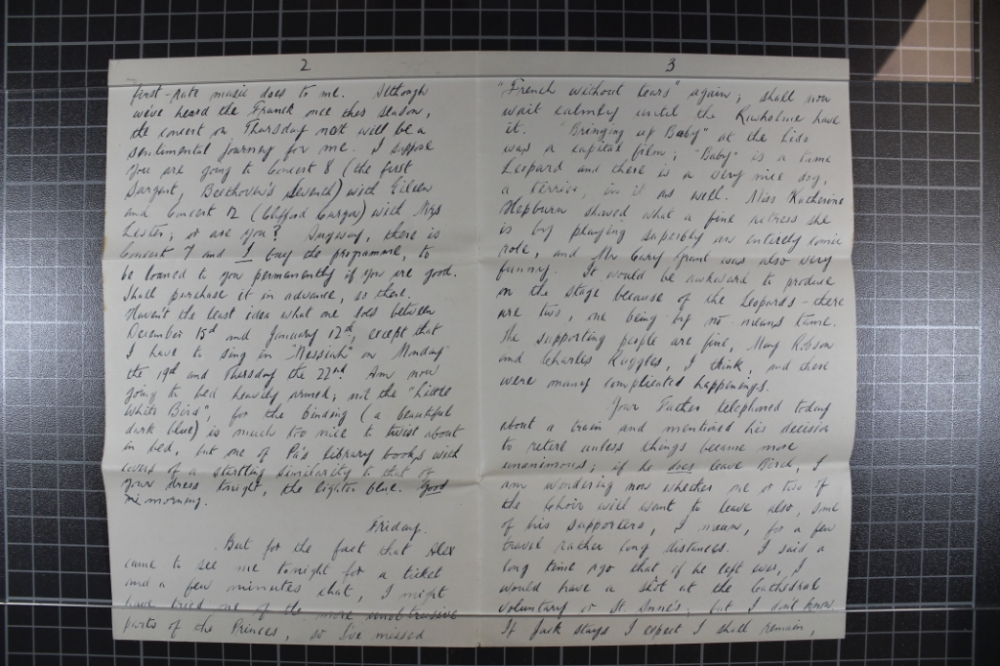 2
first-rate music does to me. Although
we've heard the Franck once this season,
the concert on Thursday next will be a
sentimental journey for me. I suppose
you are going to Concert 8 (the first
Sargent, Beethoven's Seventh) with Eileen
and Concert 12 (Clifford Curzon) with Mrs
Lester; or are you? Anyway, there is
Concert 7 and I buy the programme, to
be loaned to you permanently if you are good.
Shall purchase it in advance, so there.
Haven't the least idea what one does between
December 15th and January 12th, except that
I have to sing in "Messiah" on Monday
the 19th and Thursday the 22nd. Am now
going to bed heavily armed; not the "Little
White Bird", for the binding (a beautiful
dark blue) is much too nice to twist about
in bed, but one of Pa's library books with
covers of a startling similarity to that of
your dress tonight, the lighter blue. Good
morning.
Friday.
But for the fact that Alex
came to see me tonight for a ticket
and a few minutes chat, I might
have tried one of the more unobtrusive
parts of the Princes, so I've missed
3
"French without tears" again; shall now
wait calmly until the Rusholme have
it. "Bringing up Baby" at the Lido
was a capital film; "Baby" is a tame
Leopard and there is a very nice dog,
a terrier, in it as well. Miss Katherine
Hepburn showed what a fine actress she
is by playing superbly an entirely comic
role, and Mr Cary Grant was also very
funny. It would be awkward to produce
on the stage because of the Leopards - there
are two, one being by no means tame.
The supporting people are fine, May Robson
and Charles Ruggles, I think, and there
were many complicated happenings.
Your Father telephoned today
about a train and mentioned his decision
to retire unless things became more
unanimous; if he does leave, I
am wondering now whether one or two of
the choir will want to leave also, some
of his supporters, I mean, for a few
travel rather long distances. I said a
long time ago that if he left was, I
would have a shot at the Cathedral
Voluntary or St. Anne's; but I don't know.
If Jack stays I expect I shall remain,